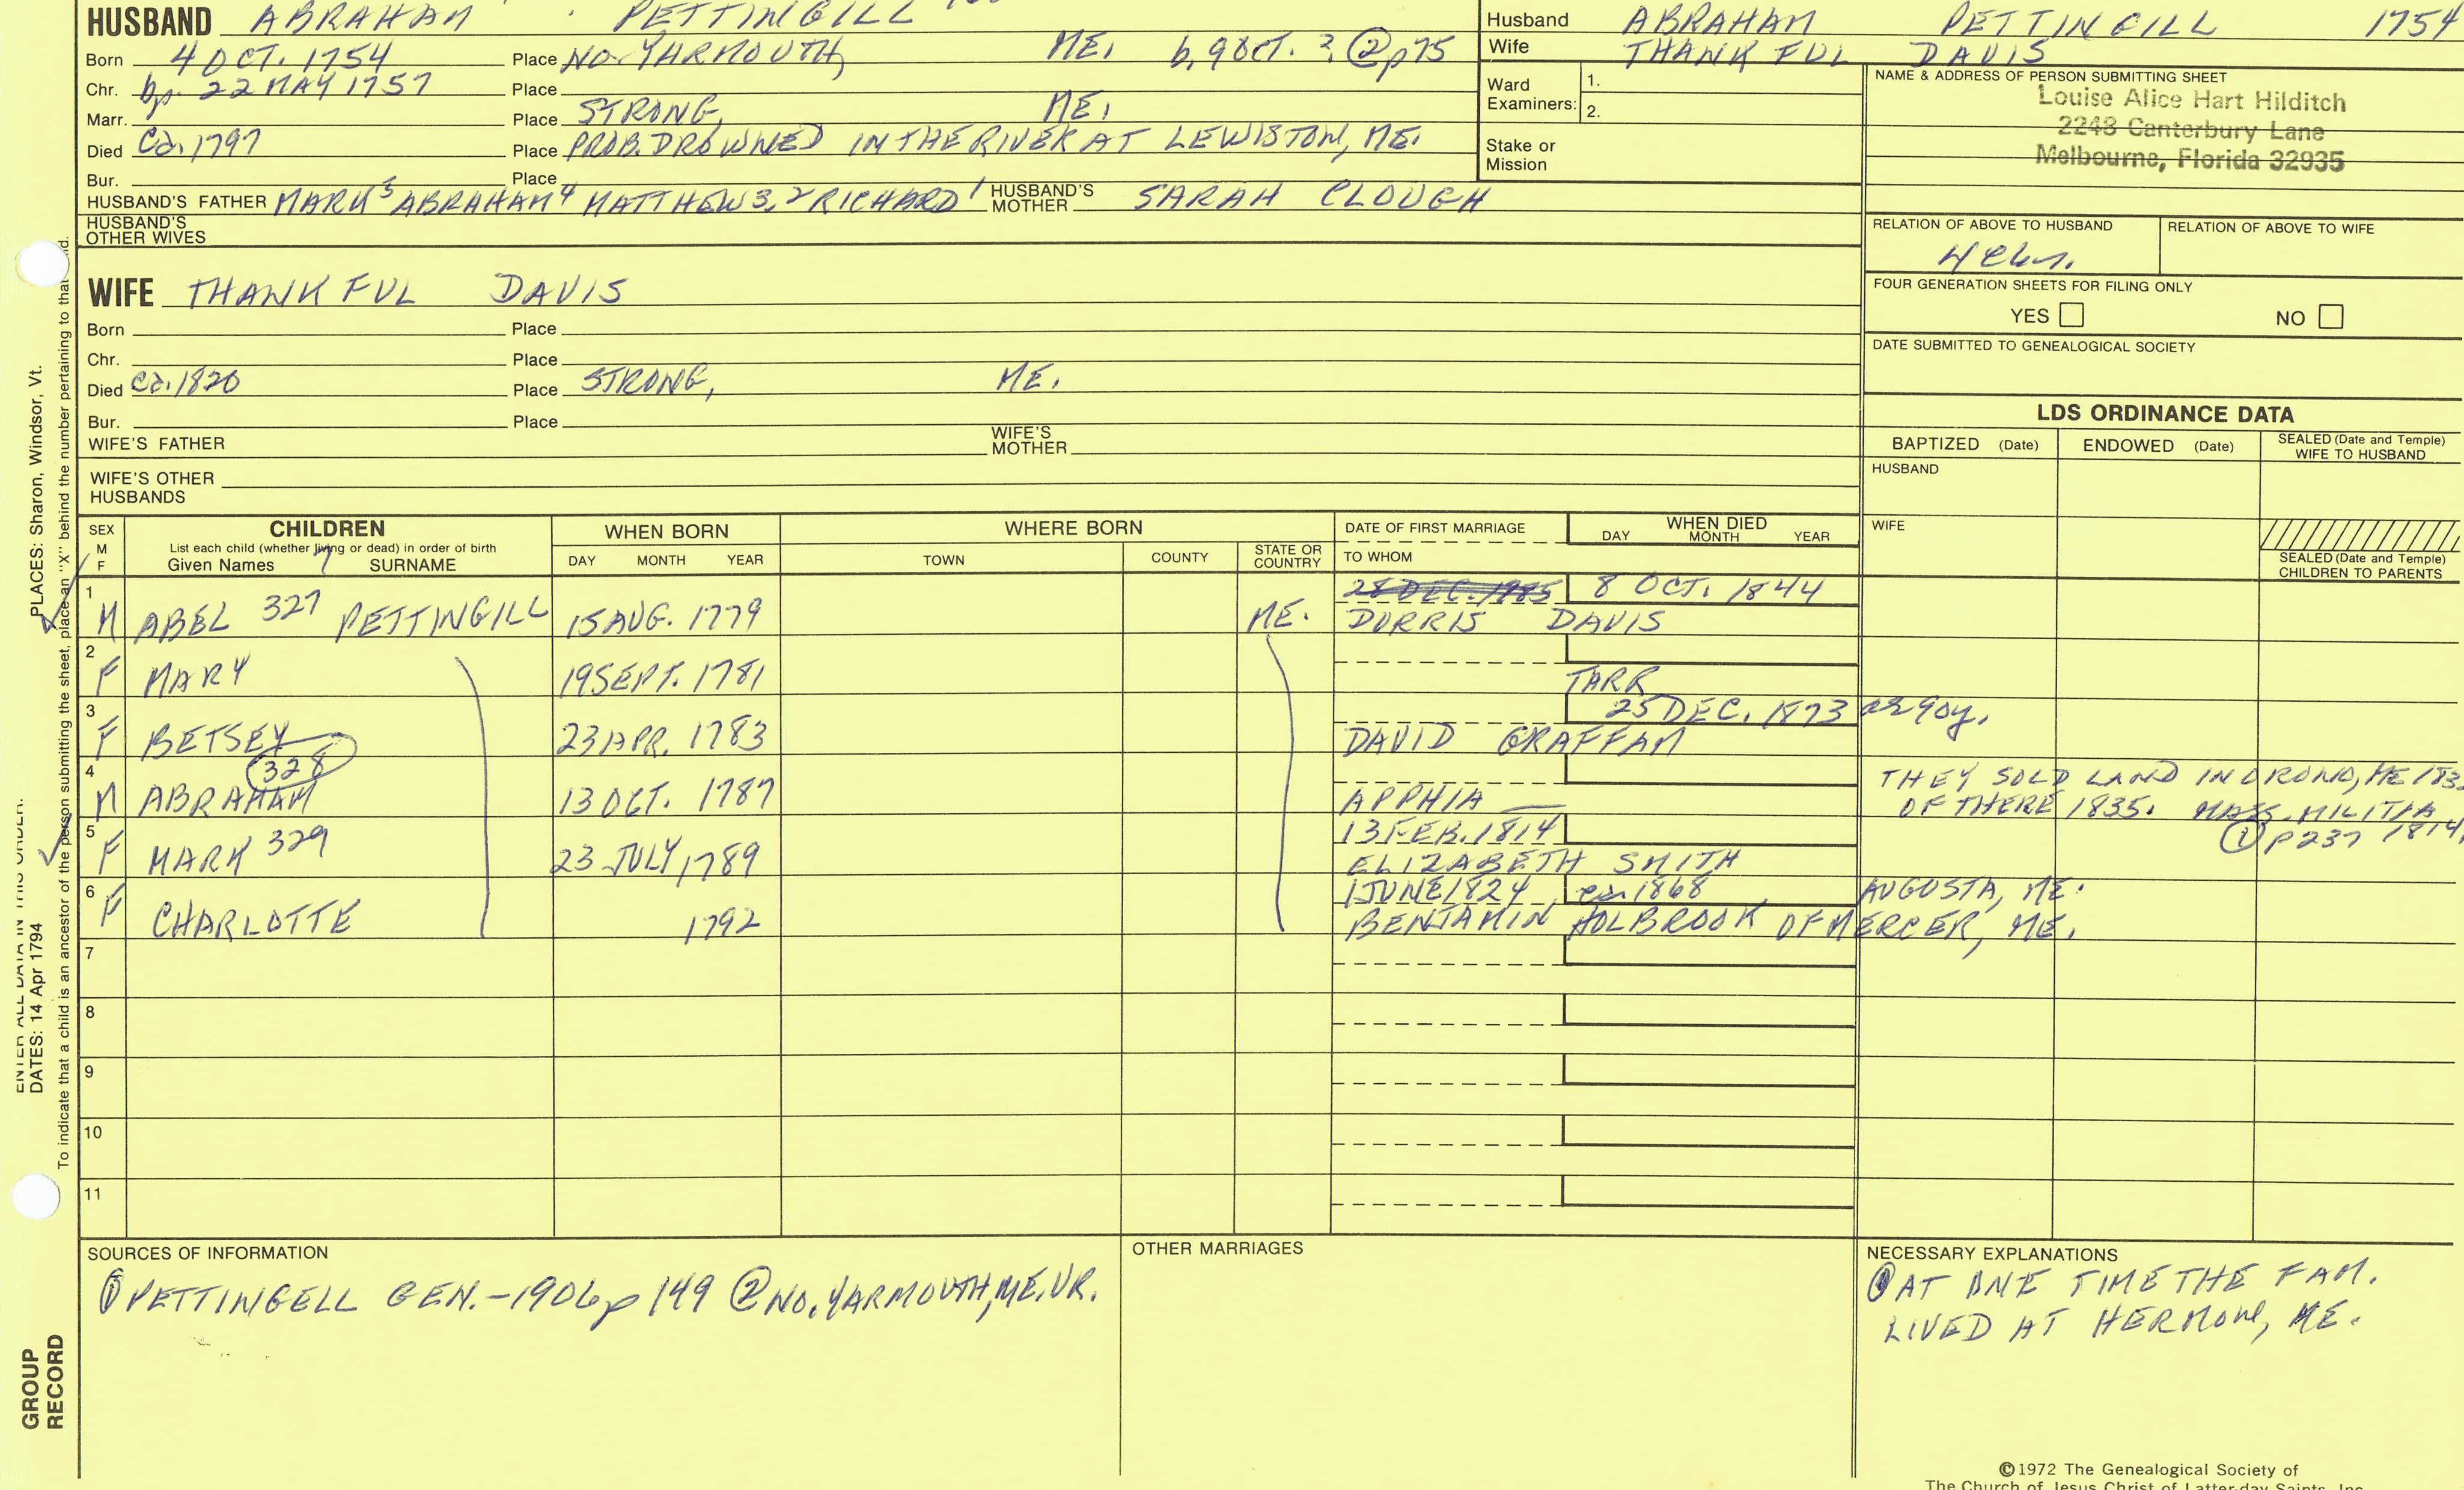 HUSBAND ABRAHAM PETTINGILL
Born 4 OCT. 1754 Place NO. YARMOUTH, ME. b. 9 OCT. ? ② p75
Chr. bp. 22 MAY 1757 Place
Marr. Place STRONG, ME.
Died Ca. 1797 Place PROB. DROWNED IN THE RIVER AT LEWISTON, ME.
Bur. Place
HUSBAND'S FATHER MARK5 ABRAHAM4 MATTHEW3,2 RICHARD1 HUSBAND'S MOTHER SARAH CLOUGH
HUSBAND'S
OTHER WIVES
Husband ABRAHAM PETTINGILL 1754
Wife THANKFUL DAVIS
Ward
Examiners: 1.
2.
Stake or
Mission
NAME & ADDRESS OF PERSON SUBMITTING SHEET
Louise Alice Hart Hilditch
2248 Canterbury Lane
Melbourne, Florida 32935
RELATION OF ABOVE TO HUSBAND RELATION OF ABOVE TO WIFE
FOUR GENERATION SHEETS FOR FILING ONLY
YES NO
DATE SUBMITTED TO GENEALOGICAL SOCIETY
WIFE THANKFUL DAVIS
Born Place
Chr. Place
Died Ca. 1820 Place STRONG, ME.
Bur. Place
WIFE'S FATHER WIFE'S MOTHER
WIFE'S OTHER
HUSBANDS
LDS ORDINANCE DATA
BAPTIZED (Date) ENDOWED (Date) SEALED (Date and Temple) WIFE TO HUSBAND
HUSBAND
WIFE
SEALED (Date and Temple) CHILDREN TO PARENTS
SEX M F CHILDREN WHEN BORN WHERE BORN DATE OF FIRST MARRIAGE WHEN DIED
List each child (whether living or dead) in order of birth
Given Names SURNAME DAY MONTH YEAR TOWN COUNTY STATE OR COUNTRY TO WHOM DAY MONTH YEAR
1 28 DEC. 1985 8 OCT. 1844
M ABEL 327 PETTINGILL 15 AUG. 1779 ME. DORRIS DAVIS
2
F MARY 19 SEPT. 1781 TARR
3 25 DEC. 1873 ae 90y.
F BETSEY 23 APR. 1783 DAVID GRAFFAM
4 328 THEY SOLD LAND IN ORONO, ME 183
M ABRAHAM 13 OCT. 1787 APPHIA — OF THERE 1835. MASS. MILITIA
① p237 1814
5 13 FEB. 1814
F MARK 329 23 JULY, 1789 ELIZABETH SMITH
6 1 JUNE 1824 ca. 1868 AUGUSTA, ME.
F CHARLOTTE 1792 BENJAMIN HOLBROOK OF MERCER, ME.
7
8
9
10
11
SOURCES OF INFORMATION
① PETTINGELL GEN.-1906 p 149 ② NO. YARMOUTH, ME. VR.
OTHER MARRIAGES
NECESSARY EXPLANATIONS
① AT ONE TIME THE FAM.
LIVED AT HERMON, ME.
©1972 The Genealogical Society of
The Church of Jesus Christ of Latter-day Saints, Inc.
PLACES: Sharon, Windsor, Vt.
To indicate that a child is an ancestor of the person submitting the sheet, place an "X" behind the number pertaining to that
ENTER ALL DATA IN THIS ORDER:
DATES: 14 Apr 1794
GROUP
RECORD